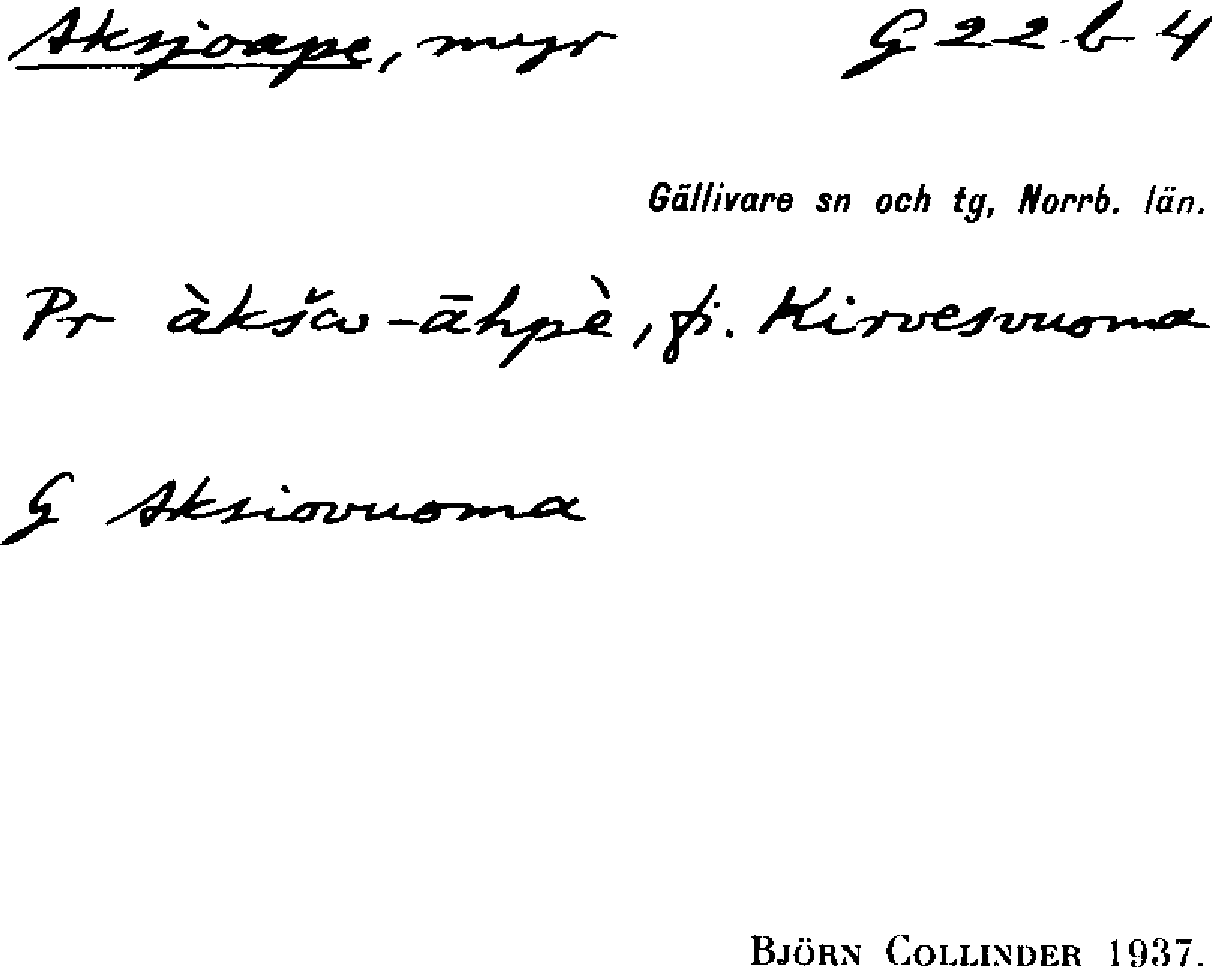 Aksjoape, myr G 22 b 4
Gällivare sn och tg, Norrb. län.
Pr àkšω-āhpè, fi. Kirvesvuoma
G Aksiovuoma
BJÖRN COLLINDER 1937.